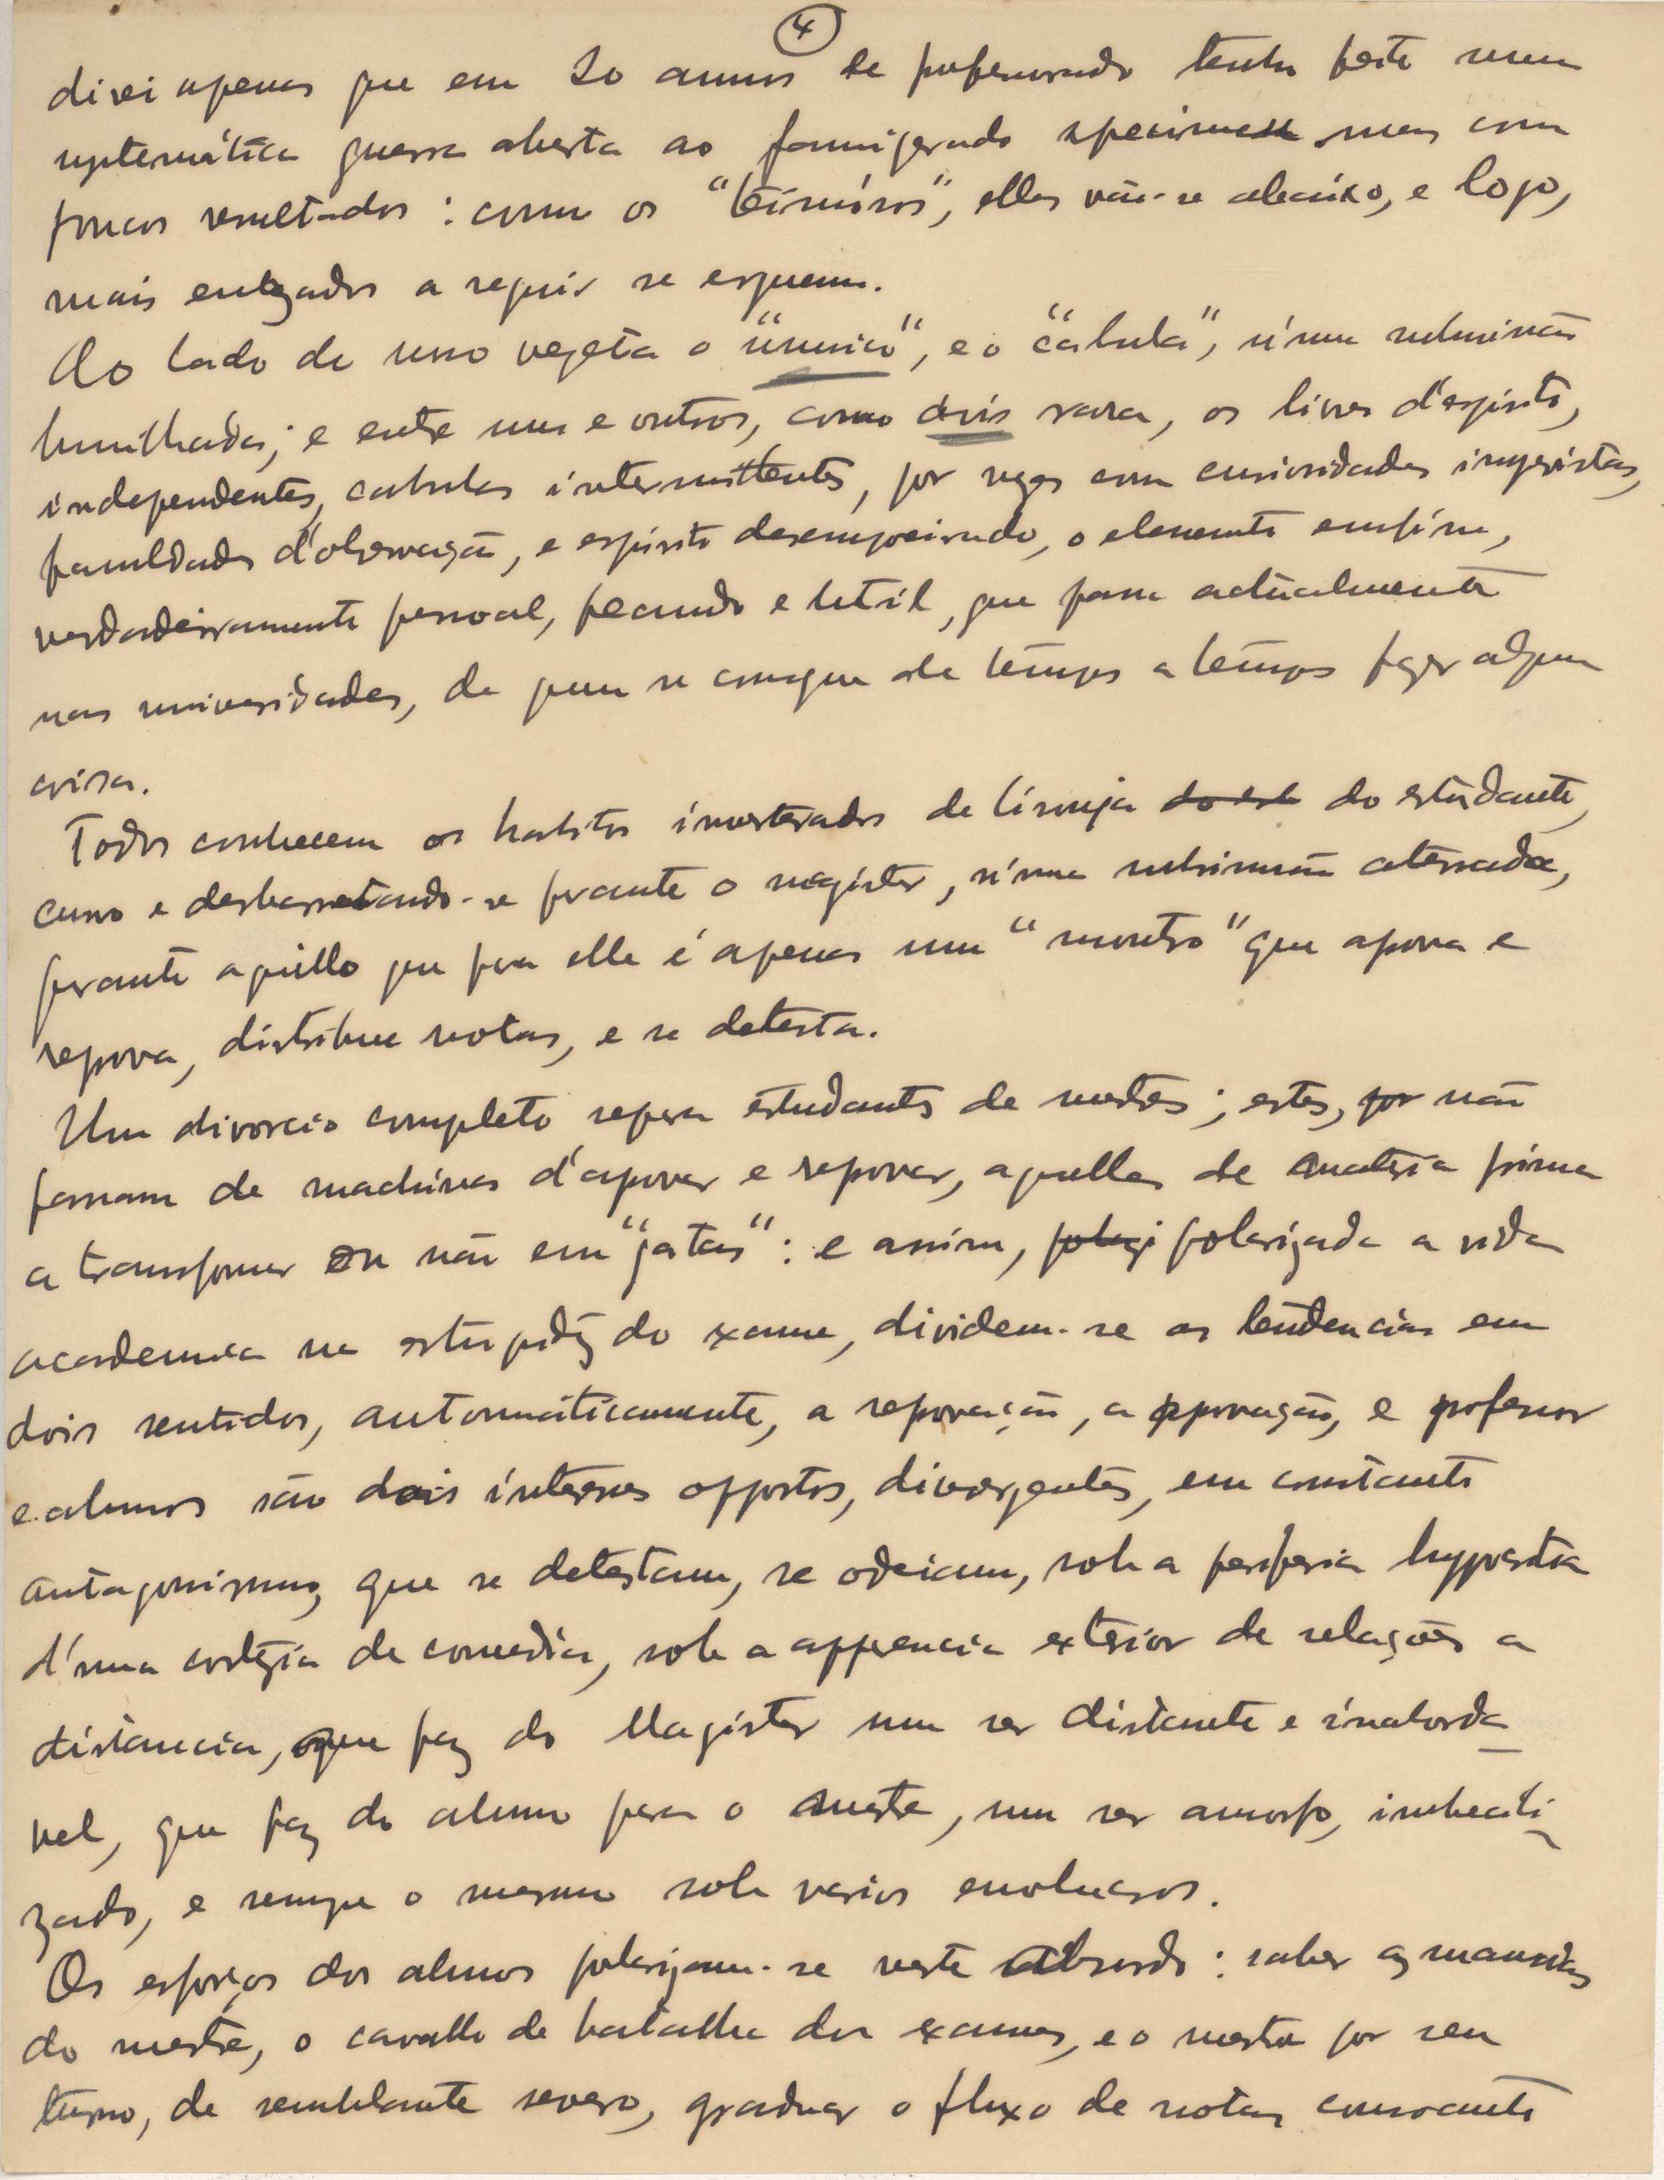 4
direi apenas que em 20 annos de professorado tenho feito uma
systematica guerra aberta ao famigerado specimen mas com
poucos resultados: como os "teimósos", elles vão-se abaixo, e logo,
mais a seguir se erguem.
Ao lado de urso vegeta o "unico", e o "cabula", n'uma submissão
humilhada; e entre uns e outros, como avis rara, os livres d'espirito,
independentes, cabulas intermittentes, por vezes com curiosidades imprevistas,
faculdades d'observação, e espirito desempoeirado, o elemento emfim,
verdadeiramente pessoal, fecundo e util, que passa actualmente
nas universidades, de quem se consegue de tempos a tempos fazer alguma
coisa.
Todos conhecem os habitos inveterados de lisonja do est do estudante,
curvo e desbarretando-se perante o magister, n'uma submissão aterrada,
perante aquillo que para elle é apenas um "monstro" que aprova e
reprova, distribue notas, e se detesta.
Um divorcio completo separa estudantes de mestres; estes, por não
passarem de machinas d'aprovar e reprovar, aquelles de materia prima
a transformar ou não em "gatas": e assim, polarizada a vida
academica na estupidez do exame, dividem-se as tendencias em
dois sentidos, automáticamente, a reprovação, a approvação, e professor
e alunos são dois interesses oppostos, divergentes, em constante
antagonismo, que se detestam, se odeiam, sob a periferia hypocrita
d'uma cortezia de comedia, sob a apparencia exterior de relações a
distancia, que faz do Magister um ser distante e inaborda
vel, que faz do aluno para o mestre, um ser amorfo, imbecili
zado, e sempre o mesmo sob varios envolucros.
Os esforços dos alunos polarizam-se neste absurdo: saber as manias
do mestre, o cavallo de batalha dos exames, e o mestre por seu
turno, de semblante severo, graduar o fluxo de notas consoante